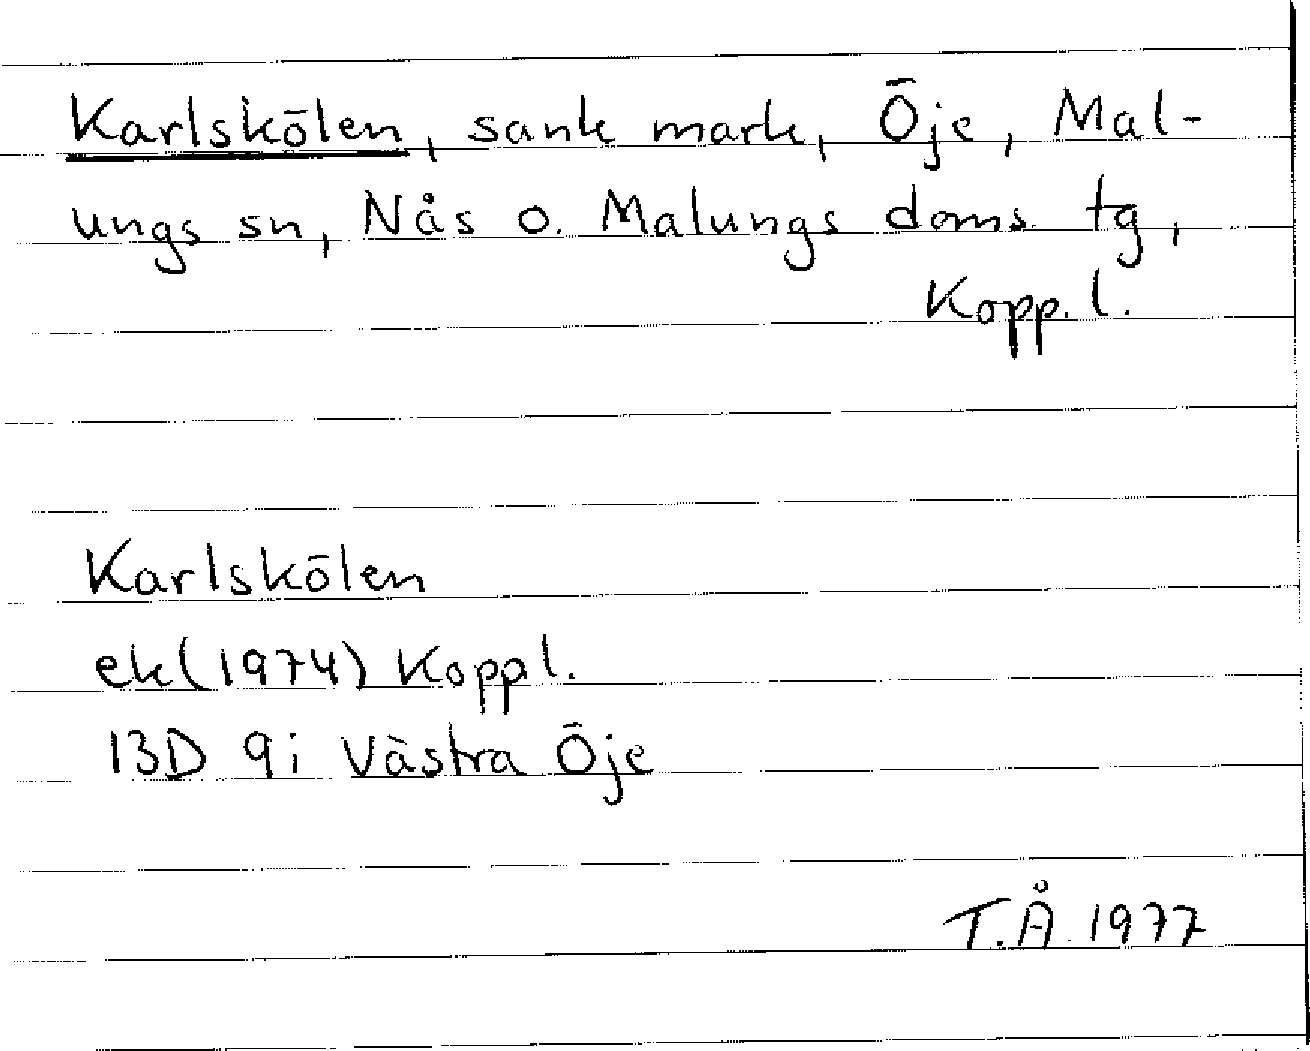 Karlskölen, sank mark, Öje, Mal-
ungs sn, Nås o. Malungs doms. tg,
Kopp. l.
Karlskölen
ek(1974) Koppl.
13D 9i Västra Öje
T.Å 1977